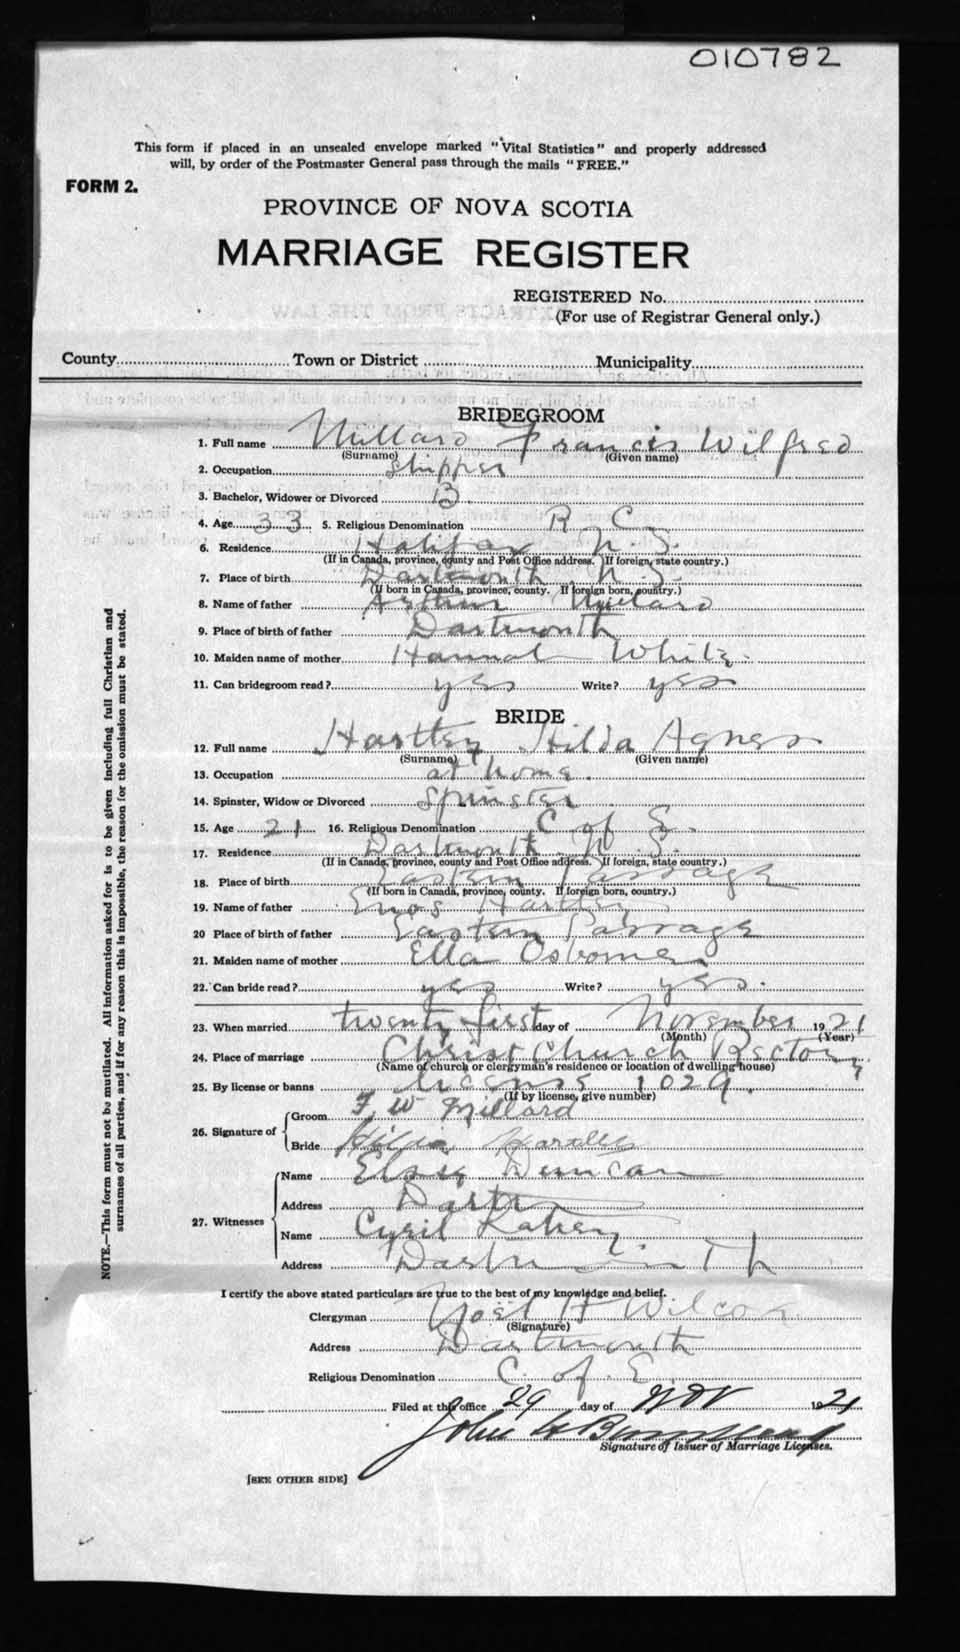 010782
This form if placed in an unsealed envelope marked "Vital Statistics" and properly addressed
will, by order of the Postmaster General pass through the mails "FREE."
FORM 2.
PROVINCE OF NOVA SCOTIA
MARRIAGE REGISTER
REGISTERED No.
(For use of Registrar General only.)
County Town or District Municipality
BRIDEGROOM
1. Full name Millard Francis Wilfred
(Surname) (Given name)
2. Occupation Shipper
3. Bachelor, Widower or Divorced B
4. Age 33 5. Religious Denomination R C
6. Residence Halifax N S.
(If in Canada, province, county and Post Office address. If foreign, state country.)
7. Place of birth Dartmouth N. S.
(If born in Canada, province, county. If foreign born, country.)
8. Name of father Arthur Millard
9. Place of birth of father Dartmouth
10. Maiden name of mother Hannah White
11. Can bridegroom read? yes Write? yes
BRIDE
12. Full name Hartley Hilda Agnes
(Surname) (Given name)
13. Occupation at home.
14. Spinster, Widow or Divorced Spinster
15. Age 21 16. Religious Denomination C of E.
17. Residence Dartmouth N. S.
(If in Canada, province, county and Post Office address. If foreign, state country.)
18. Place of birth Eastern Passage
(If born in Canada, province, county. If foreign born, country.)
19. Name of father Enos Hartley
20 Place of birth of father Eastern Passage
21. Maiden name of mother Ella Osborne
22. Can bride read? yes Write? yes.
23. When married twenty first day of November 1921
(Month) (Year)
24. Place of marriage Christ Church Rectory
(Name of church or clergyman's residence or location of dwelling house)
25. By license or banns license 1029.
(If by license, give number)
26. Signature of
Groom F W Millard
Bride Hilda Hartley
27. Witnesses
Name Elsie Duncan
Address Dart
Name Cyril
Address Dartmouth
I certify the above stated particulars are true to the best of my knowledge and belief.
Clergyman Noel H Wilcox
(Signature)
Address Dartmouth
Religious Denomination C. of E.
Filed at this office 29 day of Nov 1921
John
Signature of Issuer of Marriage Licenses.
[SEE OTHER SIDE]
NOTE.—This form must not be mutilated. All information asked for is to be given including full Christian and
surnames of all parties, and if for any reason this is impossible, the reason for the omission must be stated.